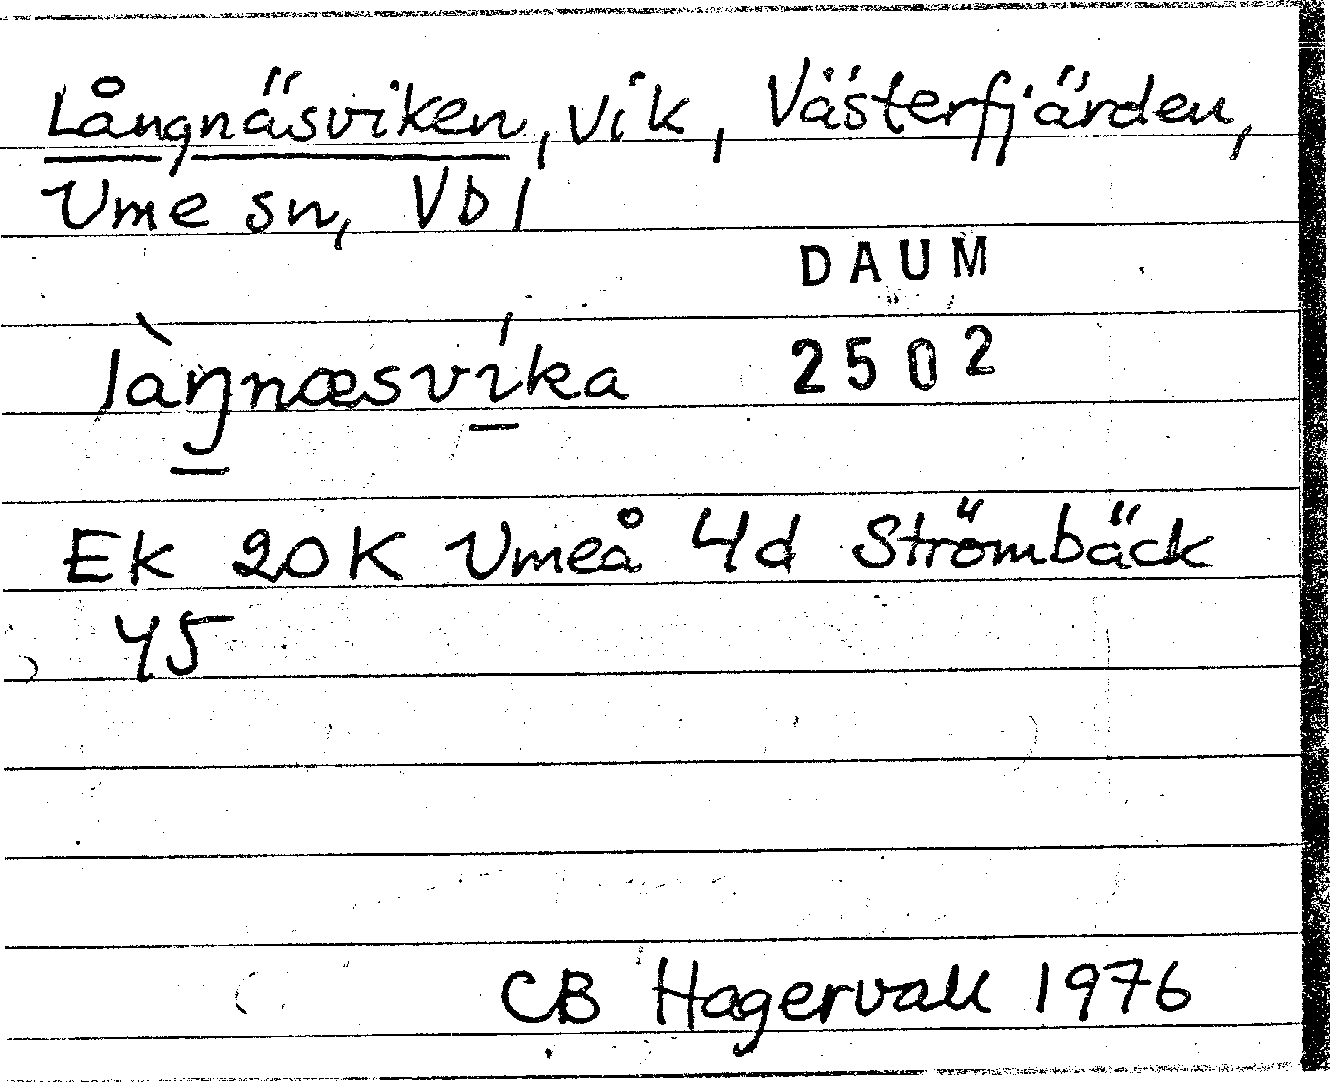 Långnäsviken, vik, Västerfjärden,
Ume sn, Vbl
DAUM
làŋnæsvíka 2502
Ek 20K Umeå 4d Strömbäck
45
CB Hagervall 1976